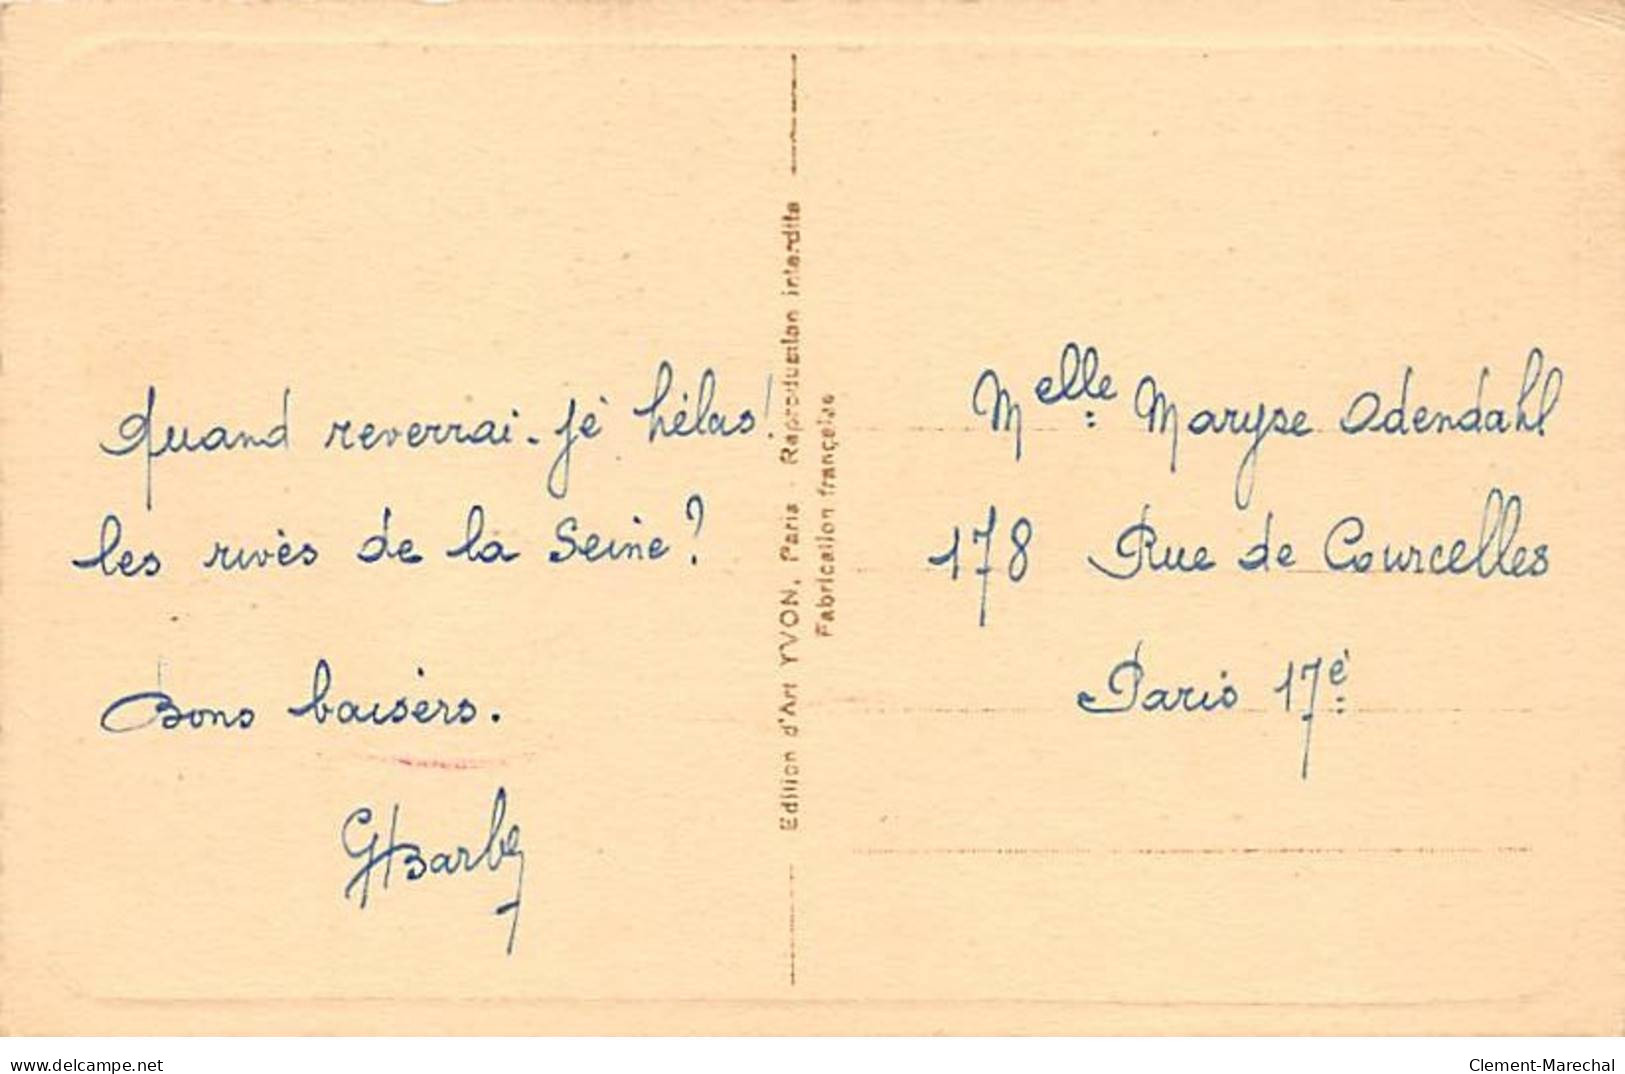 Quand reverrai-je hélas!
les rives de la Seine?
Bons baisers.
Edition d'Art YVON, Paris - Reproduction interdite
Fabrication française
Melle: Maryse Odendahl
178 Rue de Courcelles
Paris 17è:
delcampe.net
Clement-Marechal